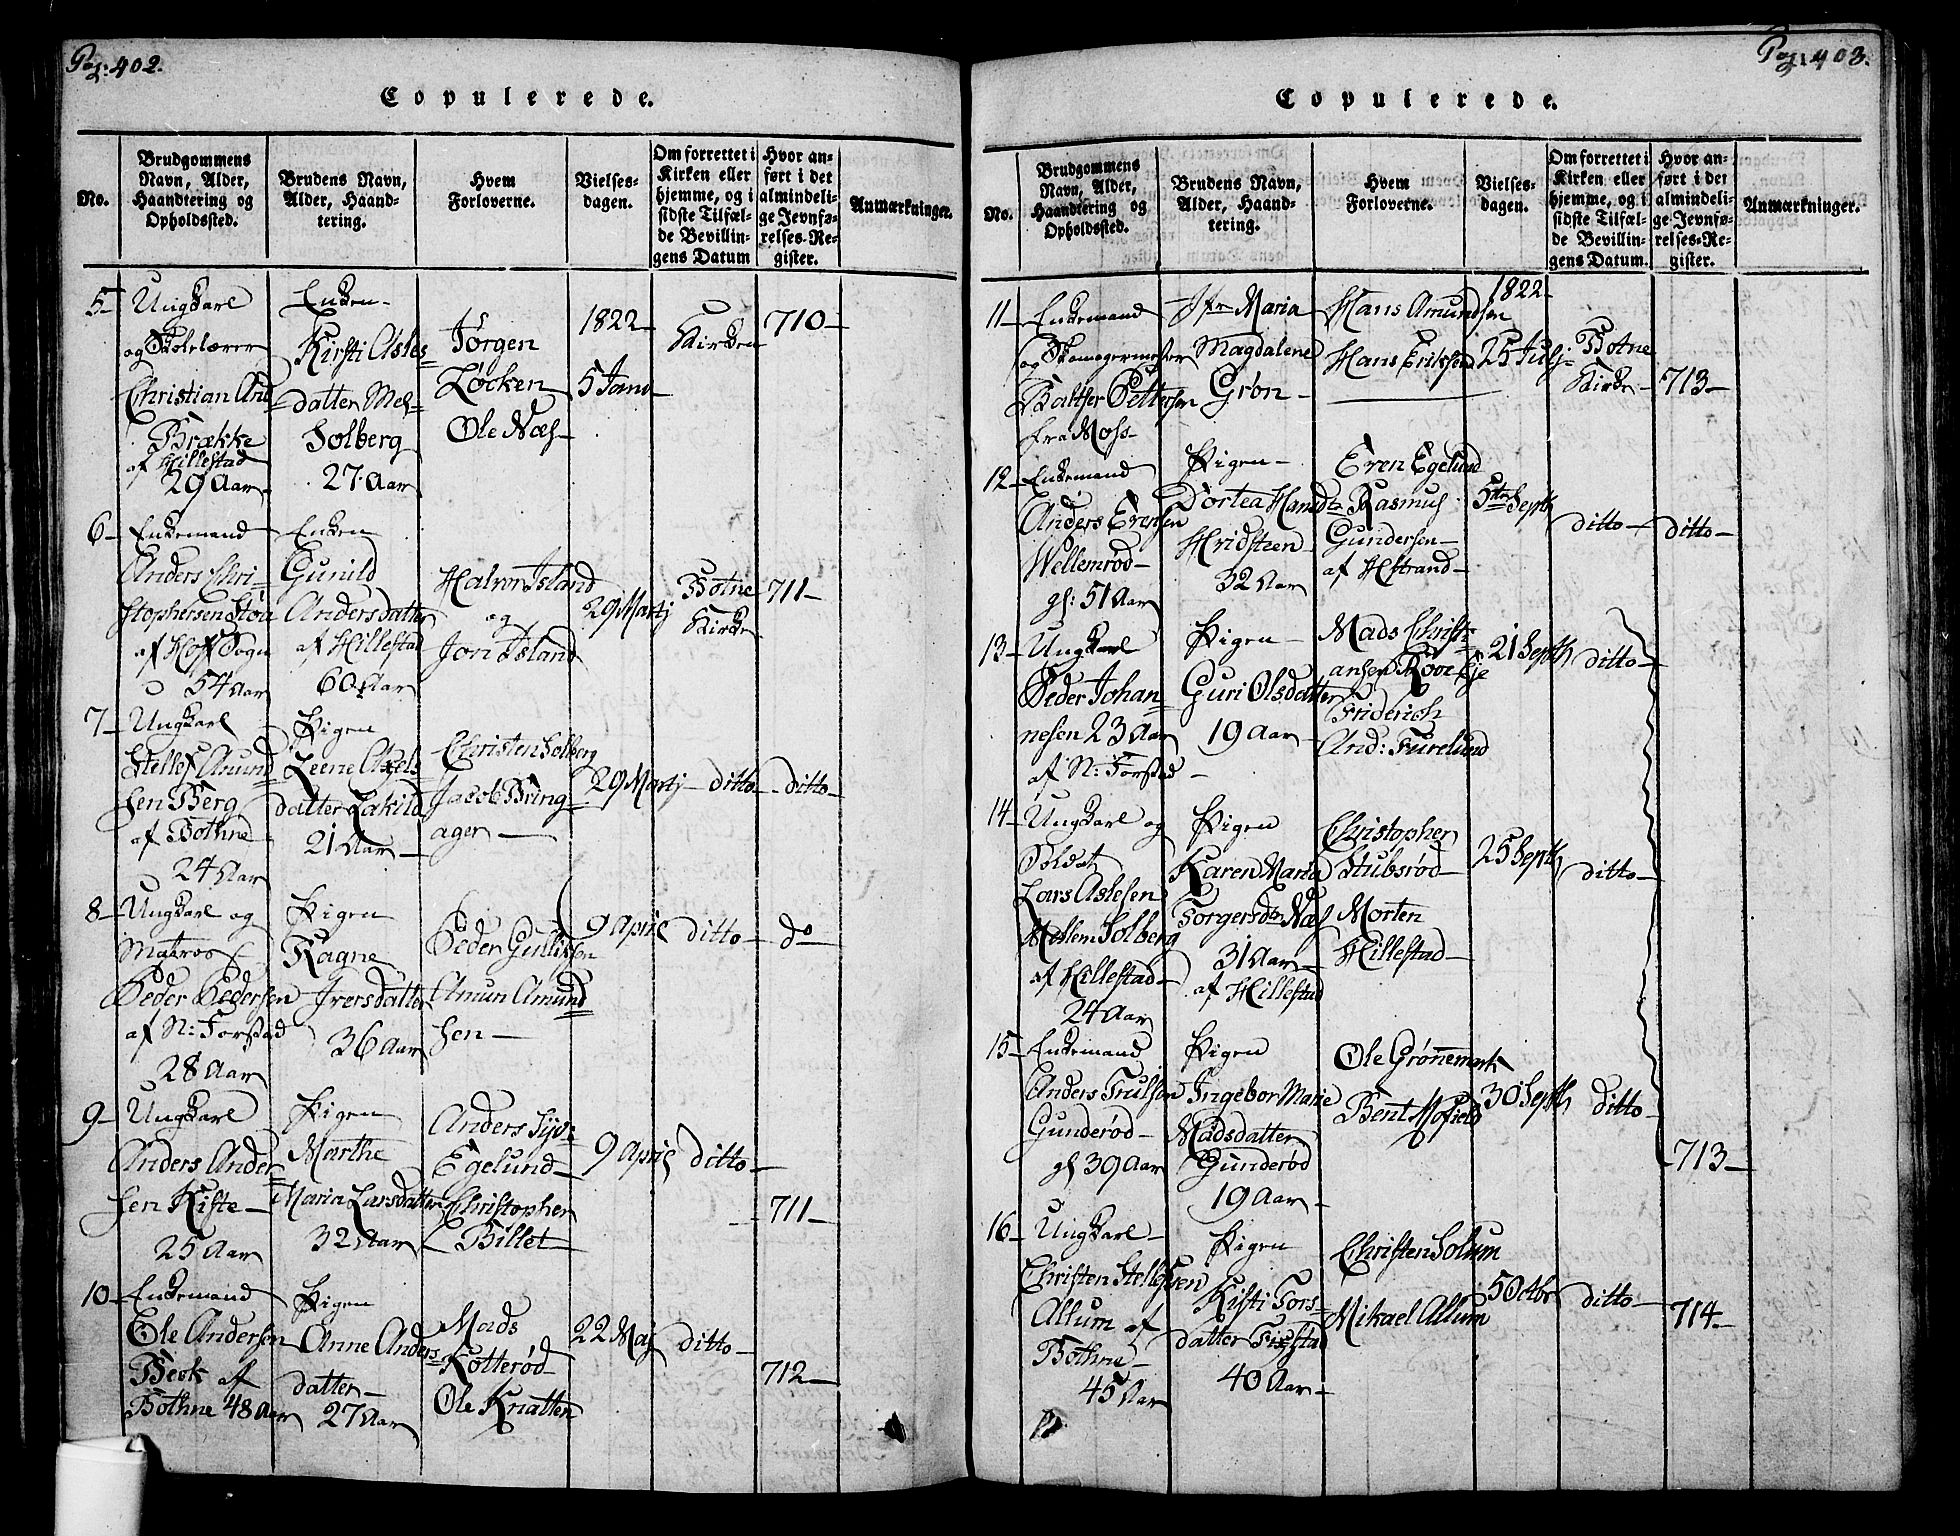 Pag: 402.
Copulerede.
No.
Brudgommens
Navn, Alder,
Haandtering og
Opholdssted.
Brudens Navn,
Alder, Haand-
tering.
Hvem
Forloverne.
Vielses-
dagen.
Om forrettet i
Kirken eller
hjemme, og i
sidste Tilfæl-
de Bevillin-
gens Datum
Hvor an-
ført i det
almindeli-
ge Jevnfø-
relses-Re-
gister.
Anmærkninger.
5
Ungkarl
og Skolelærer
Christian And
Brække
af Hillestad
29 Aar
Enken
Kirsti Asles-
datter Mel-
Solberg
27. Aar
Jørgen
Løcken
Ole Næs
1822
5 Janr
Kirken
710
6
Enkemand
Anders Chri-
stophersen Stoa
af Hoff Sogn
54 Aar
Enken
Gunild
Andersdatter
af Hillestad
60 Aar
Halvor Island
og
Jon Island
29 Martj
Botne
Kirke
711
7
Ungkarl
Stellef Anund
sen Berg
af Bothne
24 Aar
Pigen
Leene Axels
datter Lakild
21 Aar
Christen Solberg
Jacob Bring-
ager
29 Martj
ditto
ditto
8
Ungkarl og
Matros
Peder Pedersen
af N: Forstad
28 Aar
Pigen
Ragne
Iversdatter
36 Aar
Peder Gulliksen
Amun Amund
sen
9 April
ditto
do
9
Ungkarl
Anders Ander
sen Kiste
25 Aar
Pigen
Marthe
Maria Larsdatter
32 Aar
Anders Syv:
Egelund
Christopher
Billet
9 April
ditto
711
10
Enkemand
Ole Andersen
Besk af
Bothne 48 Aar
Pigen
Anne Anders-
datter
27 Aar
Mads
Kotterød
Ole Knatten
22 Maj
ditto
712
Pag: 403.
Copulerede.
No.
Brudgommens
Navn, Alder,
Haandtering og
Opholdssted.
Brudens Navn,
Alder, Haand-
tering.
Hvem
Forloverne.
Vielses-
dagen.
Om forrettet i
Kirken eller
hjemme, og i
sidste Tilfæl-
de Bevillin-
gens Datum.
Hvor an-
ført i det
almindeli-
ge Jevnfø-
relses-Re-
gister.
Anmærkninger.
11
Enkemand
og Skomagermester
Baltser Pettersen
fra Moss
Jfr Maria
Magdalene
Grøn
Hans Amundsen
Hans Eriksen
1822
25 Julj
Botne
Kirke
713
12
Enkemand
Anders Erensen
Wellemrød
gl: 51 Aar
Pigen
Dortea Hansdtr
Hvidsteen
32 Aar
Eren Egelund
Rasmus
Gundersen
af Hstrand
5te Septb
ditto
ditto
13
Ungkarl
Peder Johan
nesen 23 Aar
af N: Forstad
Pigen
Guri Olsdatter
19 Aar
Mads Christi
ansen Rove Eje
Friderich
And: Furelund
21 Septb
ditto
14
Ungkarl og
Soldat
Lars Aslesen
Mellem Solberg
af Hillestad
24 Aar
Pigen
Karen Maria
Torgersdtr Næs
31 Aar
af Hillestad
Christopher
Stubsrød
Morten
Hillestad
25 Septb
ditto
15
Enkemand
Anders Trulsen
Gunderød
gl 39 Aar
Pigen
Ingebor Marie
Madsdatter
Gunderød
19 Aar
Ole Grønnemark
Bent Mofield
30 Septb
ditto
713
16
Ungkarl
Christen Stellefsen
Allum af
Bothne
45 Aar
Pigen
Kisti Tors-
datter Fixstad
40 Aar
Christen Solum
Mikael Allum
5 Octbr
ditto
714